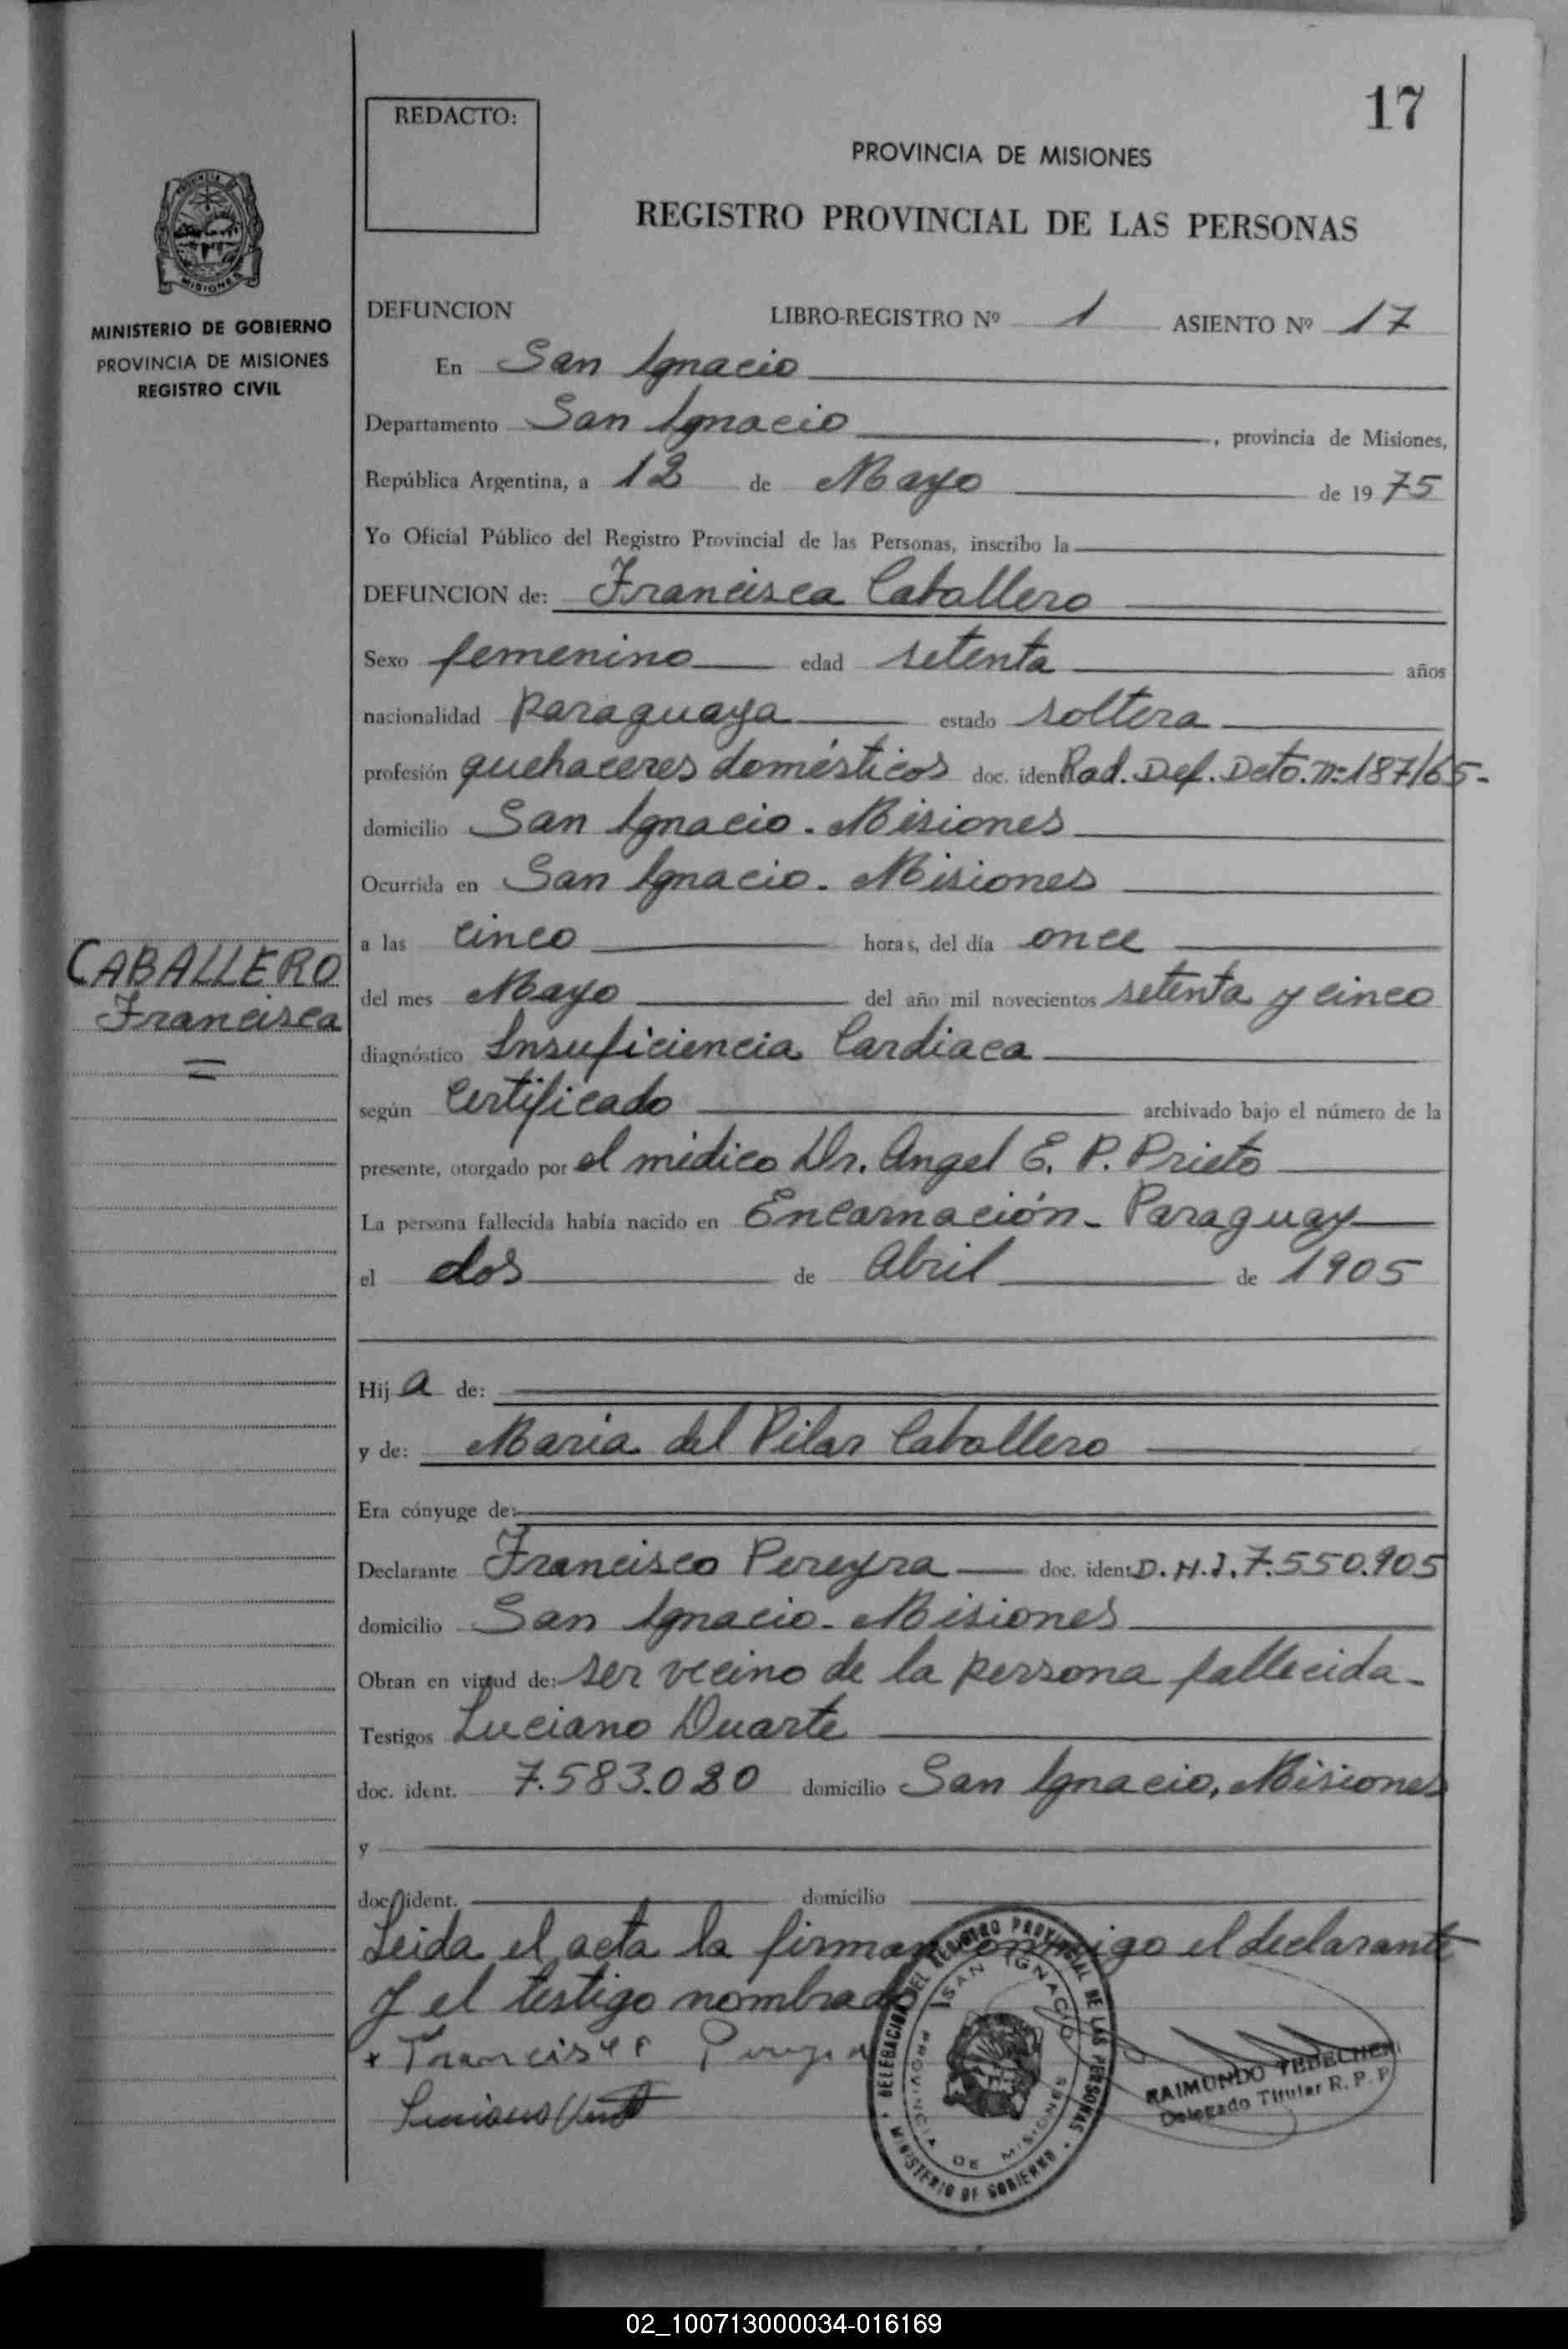 17
REDACTO:
PROVINCIA DE MISIONES
REGISTRO PROVINCIAL DE LAS PERSONAS
MISIONES
MINISTERIO DE GOBIERNO
PROVINCIA DE MISIONES
REGISTRO CIVIL
DEFUNCION LIBRO-REGISTRO Nº 1 ASIENTO Nº 17
En San Ignacio
Departamento San Ignacio, provincia de Misiones,
República Argentina, a 12 de Mayo de 1975
Yo Oficial Público del Registro Provincial de las Personas, inscribo la
DEFUNCION de: Francisca Caballero
Sexo femenino edad setenta años
nacionalidad paraguaya estado soltera
profesión quehaceres domésticos doc. iden Rad. Def. Dcto. nº 187/65-
domicilio San Ignacio. Misiones
Ocurrida en San Ignacio. Misiones
a las cinco horas, del día once
CABALLERO
Francisca
del mes Mayo del año mil novecientos setenta y cinco
diagnóstico Insuficiencia Cardiaca
según certificado archivado bajo el número de la
presente, otorgado por el médico Dr. Angel E. P. Prieto
La persona fallecida había nacido en Encarnación - Paraguay
el dos de Abril de 1905
Hija de:
y de: Maria del Pilar Caballero
Era cónyuge de:
Declarante Francisco Pereyra doc. ident. D.N.I. 7.550.905
domicilio San Ignacio - Misiones
Obran en virtud de: ser vecino de la persona fallecida -
Testigos Luciano Duarte
doc. ident. 7.583.080 domicilio San Ignacio, Misiones
y
doc. ident. domicilio
Leida el acta la firman conmigo el declarante
y el testigo nombrado
DELEGACION DEL REGISTRO PROVINCIAL DE LAS PERSONAS
SAN IGNACIO
PROVINCIA DE MISIONES
MINISTERIO DE GOBIERNO
RAIMUNDO
Delegado Titular R. P. P.
02_100713000034-016169